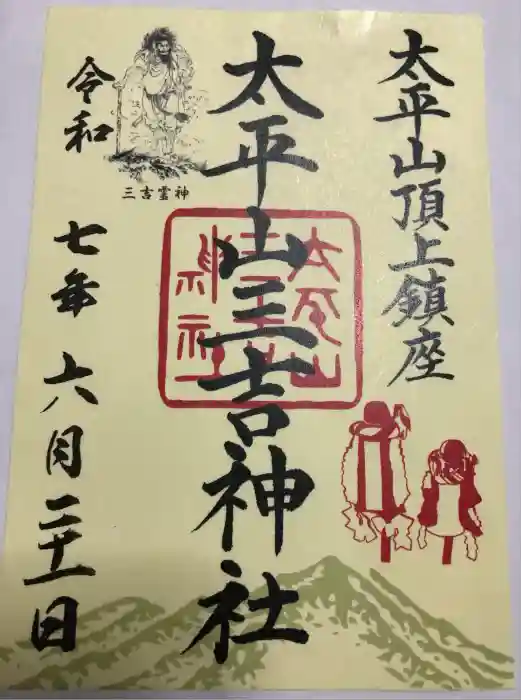 太平山頂上鎮座
太平山三吉神社
三吉霊神
令和七年六月二十一日